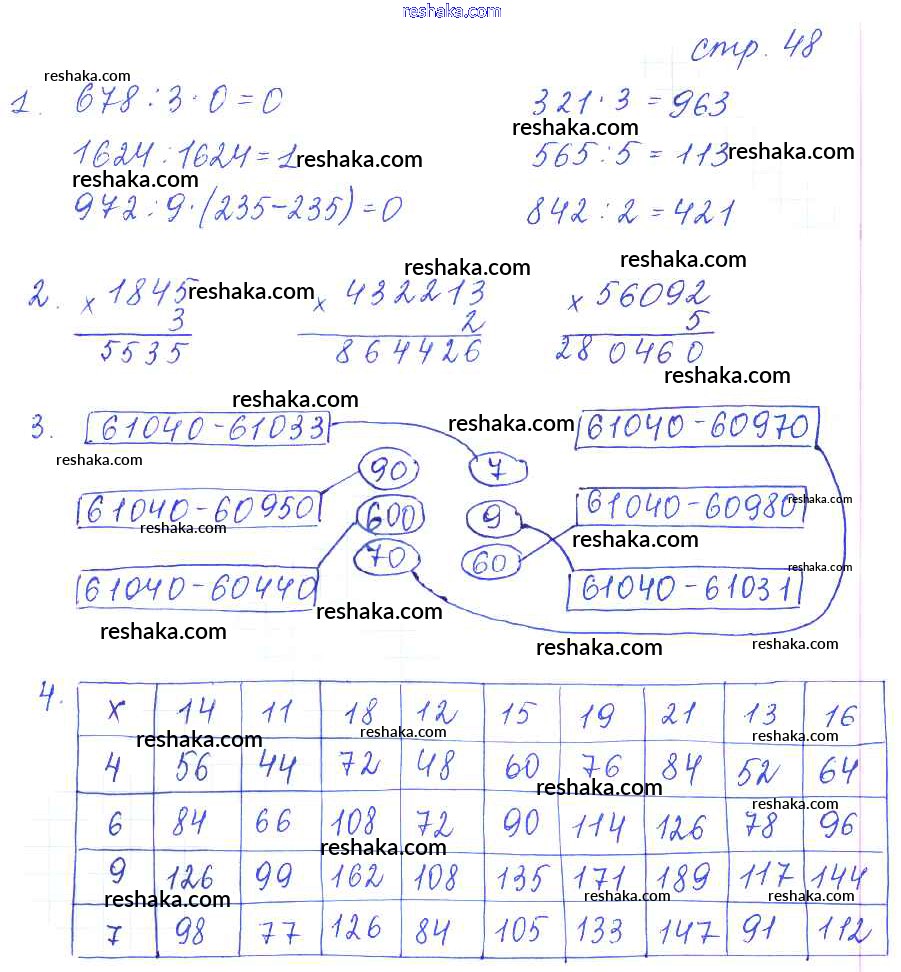 reshaka.com
стр. 48
reshaka.com
1. 678 : 3 · 0 = 0    321 · 3 = 963
reshaka.com
1624 : 1624 = 1 reshaka.com    565 : 5 = 113 reshaka.com
reshaka.com
972 : 9 · (235 - 235) = 0    842 : 2 = 421
reshaka.com    reshaka.com
2. × 1845 reshaka.com    × 432213    × 56092
3    2    5
5535    864426    280460
reshaka.com
reshaka.com
3. 61040 - 61033    reshaka.com    61040 - 60970
reshaka.com    90    7
61040 - 60950    600    9    61040 - 60980
reshaka.com    reshaka.com
reshaka.com
70    60    reshaka.com
61040 - 60440    61040 - 61031
reshaka.com
reshaka.com    reshaka.com    reshaka.com
4. × 14 11 18 12 15 19 21 13 16
reshaka.com    reshaka.com    reshaka.com
4 56 44 72 48 60 76 84 52 64
reshaka.com    reshaka.com
6 84 66 108 72 90 114 126 78 96
reshaka.com
9 126 99 162 108 135 171 189 117 144
reshaka.com    reshaka.com    reshaka.com
7 98 77 126 84 105 133 147 91 112